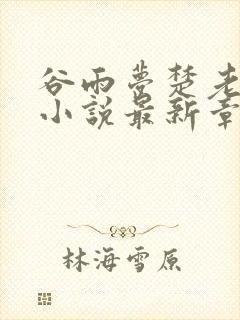 谷雨梦楚老
小說最新章
林海雪原